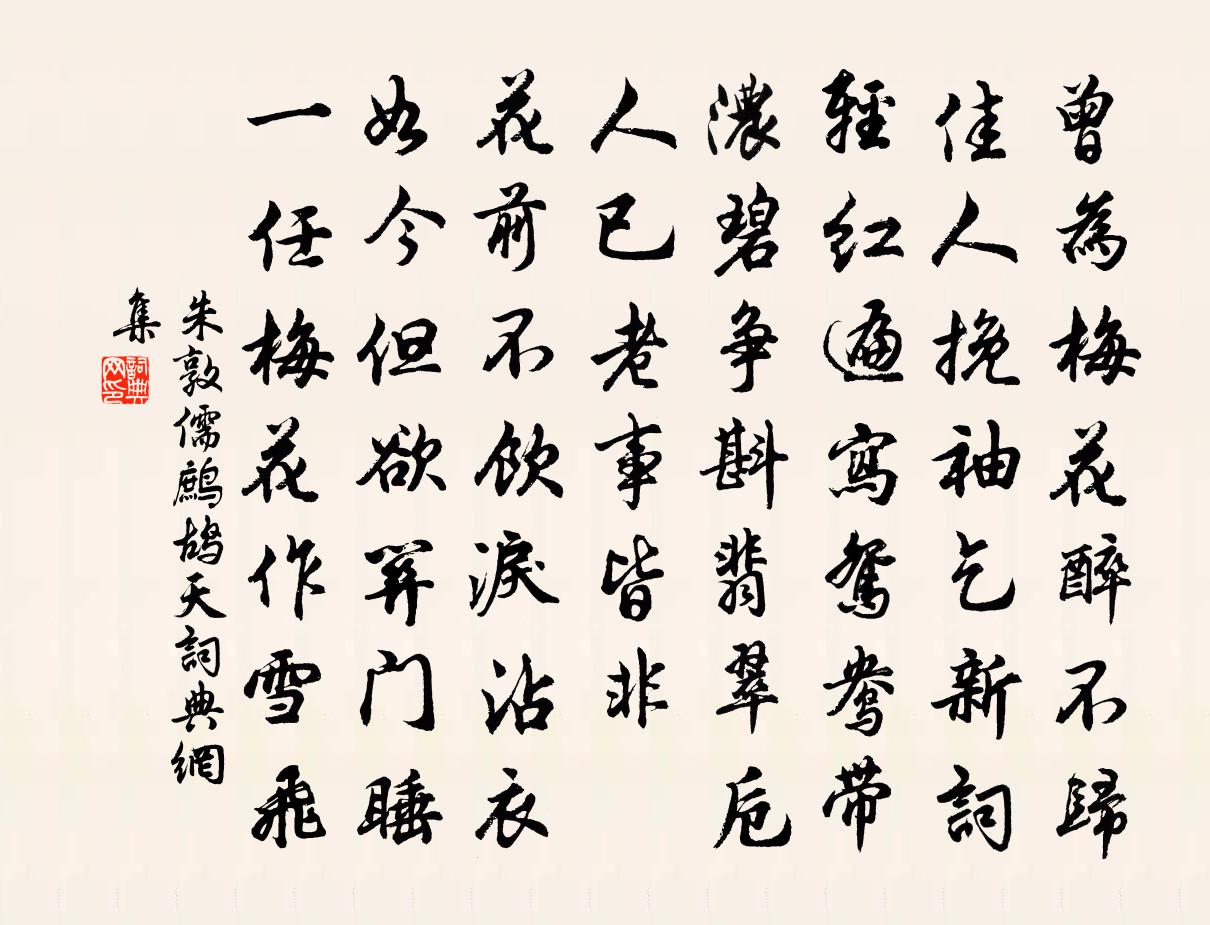 曾為梅花醉不歸
佳人挽袖乞新詞
輕紅遍寫鴛鴦帶
濃碧争斟翡翠卮
人已老事皆非
花前不飲淚沾衣
如今但欲關門睡
一任梅花作雪飛
朱敦儒鷓鴣天詞典網
集
詞典
网印